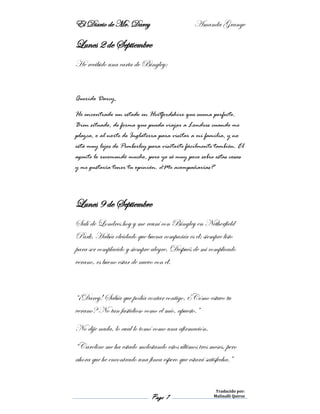 El Diario de Mr. Darcy Amanda Grange
Lunes 2 de Septiembre
He recibido una carta de Bingley:
Querido Darcy,
He encontrado un estado en Hertfordshire que suena perfecto.
Bien situado, de forma que pueda viajar a Londres cuando me
plazca, o al norte de Inglaterra para visitar a mi familia, y no
está muy lejos de Pemberley para visitarte fácilmente también. El
agente lo recomendó mucho, pero yo sé muy poco sobre estas cosas
y me gustaría tener tu opinión. ¿Me acompañarías?"
Lunes 9 de Septiembre
Salí de Londres hoy y me reuní con Bingley en Netherfield
Park. Había olvidado que buena compañía es él; siempre listo
para ser complacido y siempre alegre. Después de mi complicado
verano, es bueno estar de nuevo con él.
"¡Darcy! Sabía que podía contar contigo. ¿Cómo estuvo tu
verano? No tan fastidioso como el mío, apuesto."
No dije nada, lo cual lo tomó como una afirmación.
"Caroline me ha estado molestando estos últimos tres meses, pero
ahora que he encontrado una finca espero que estará satisfecha."
Page 1
Traducido por:
Malinalli Quiroz